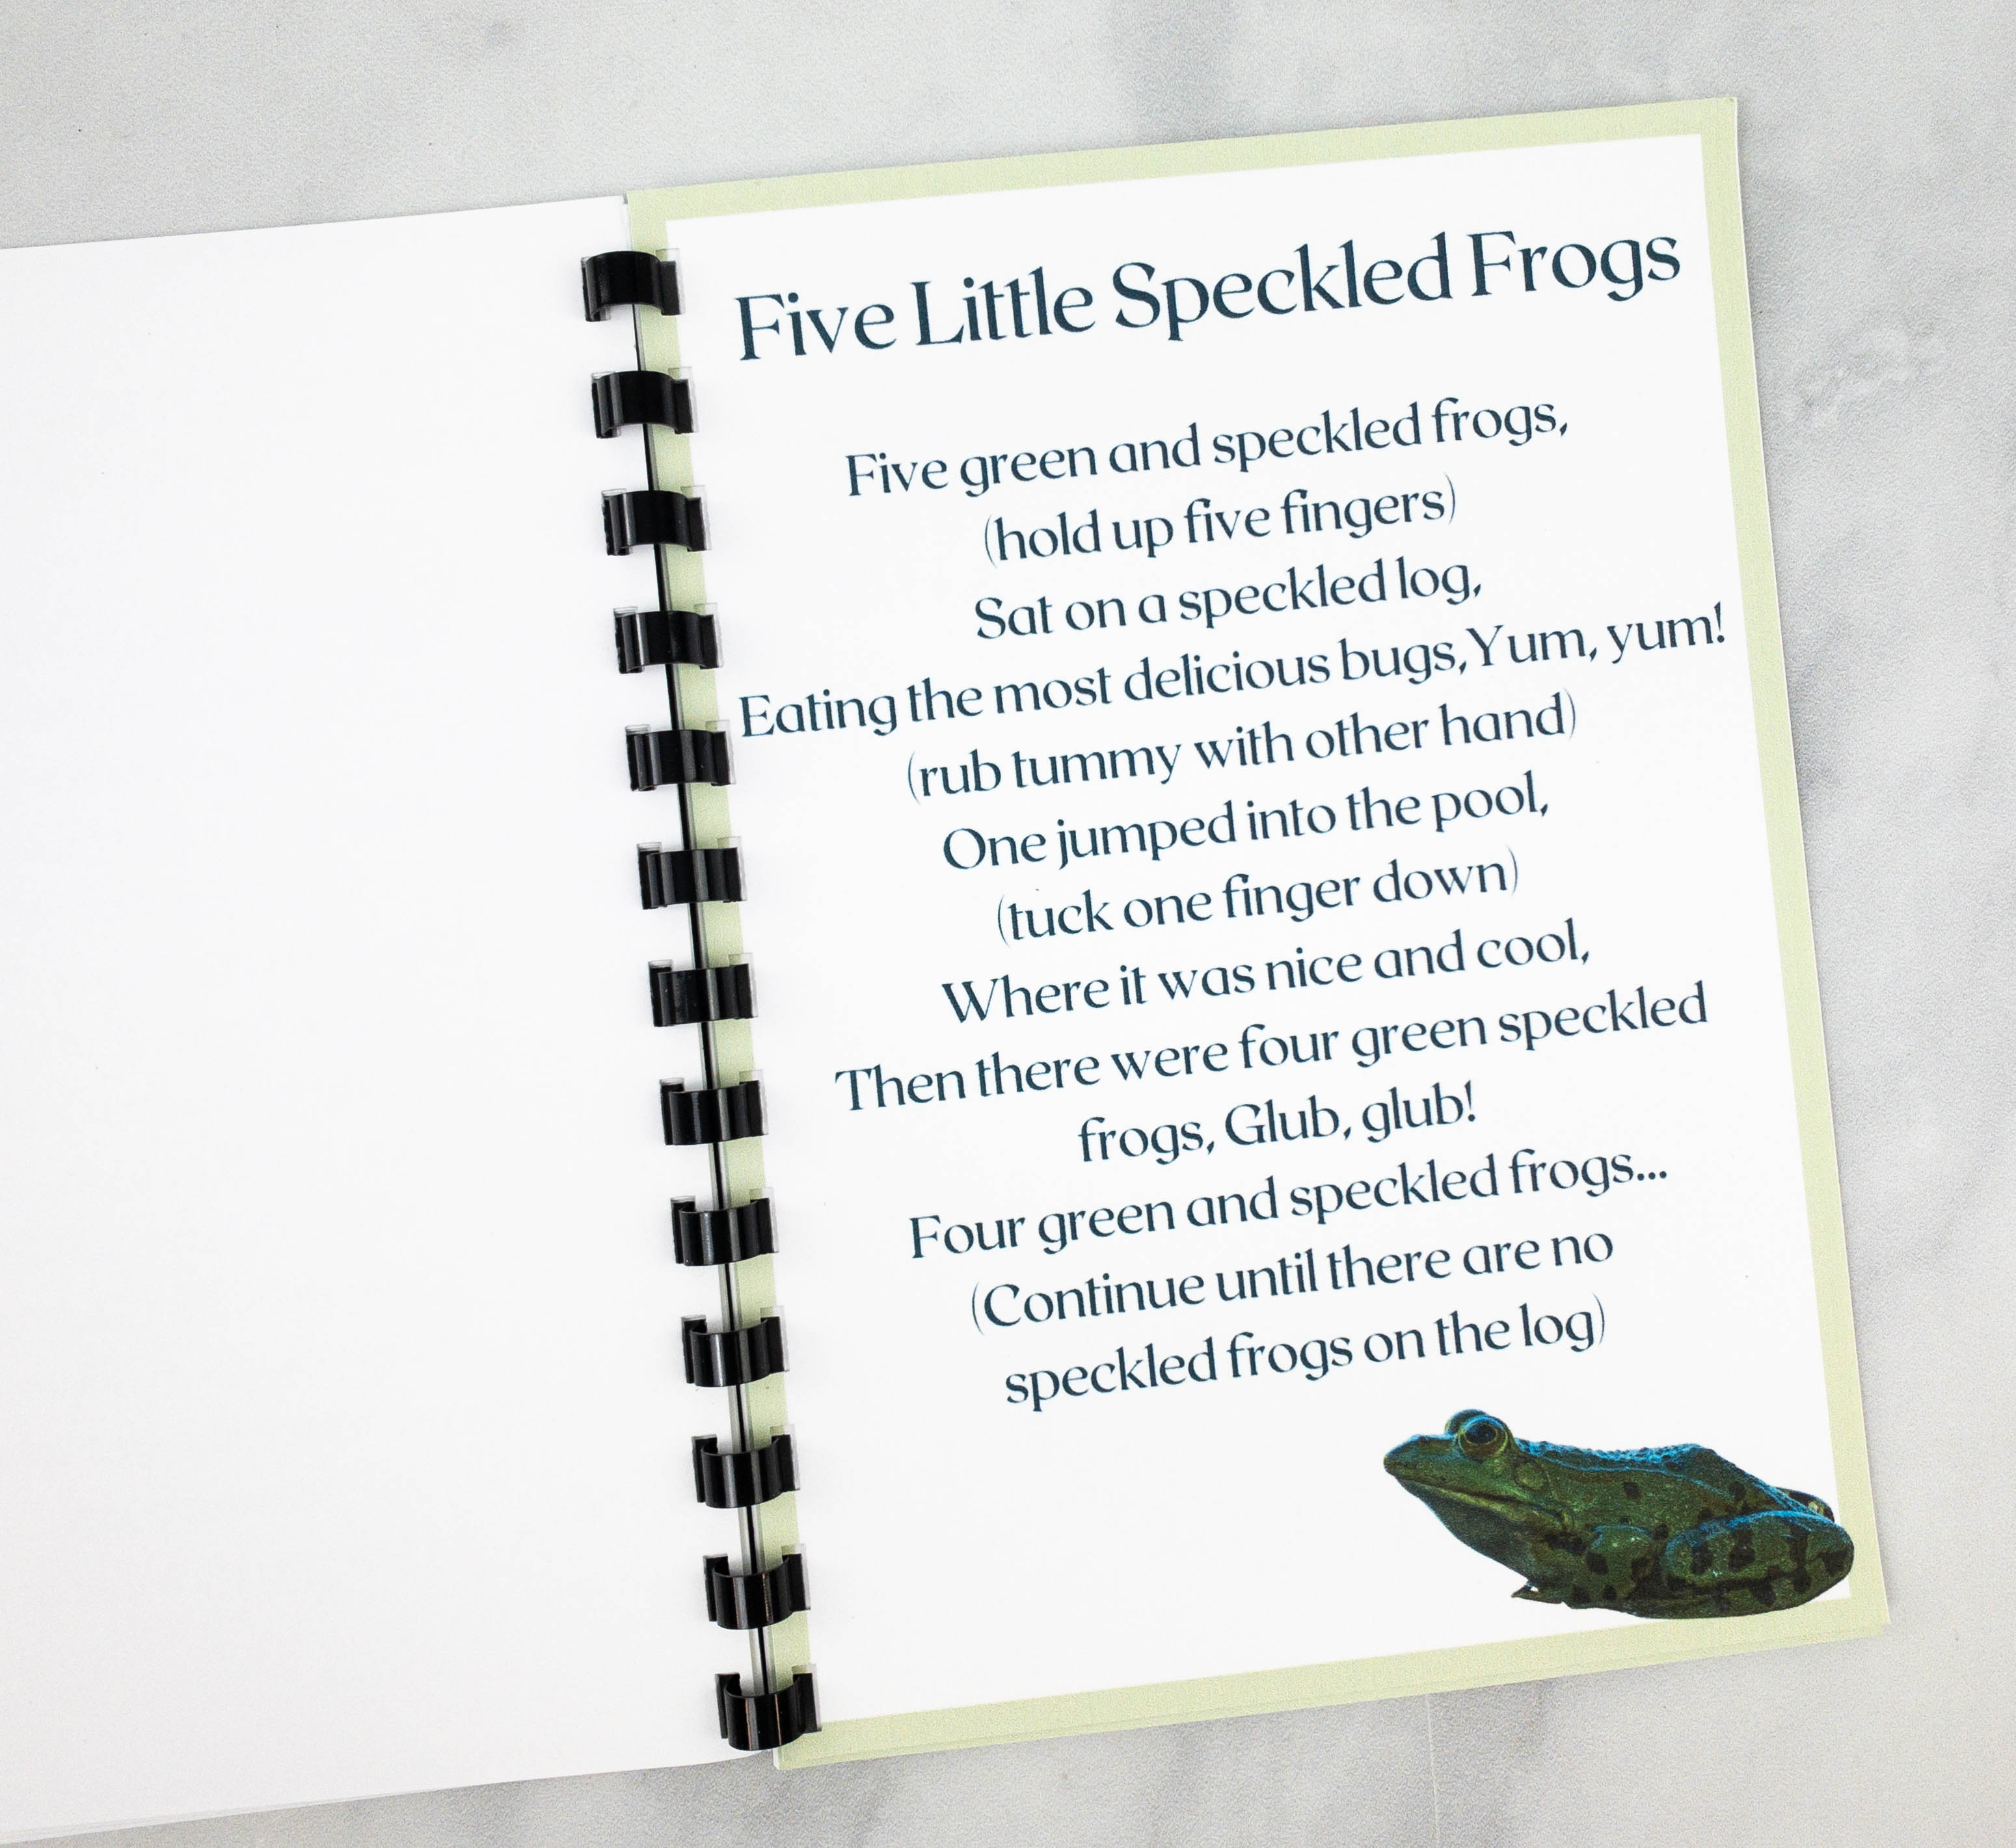 Five Little Speckled Frogs
Five green and speckled frogs,
(hold up five fingers)
Sat on a speckled log,
Eating the most delicious bugs,Yum, yum!
(rub tummy with other hand)
One jumped into the pool,
(tuck one finger down)
Where it was nice and cool,
Then there were four green speckled
frogs, Glub, glub!
Four green and speckled frogs...
(Continue until there are no
speckled frogs on the log)